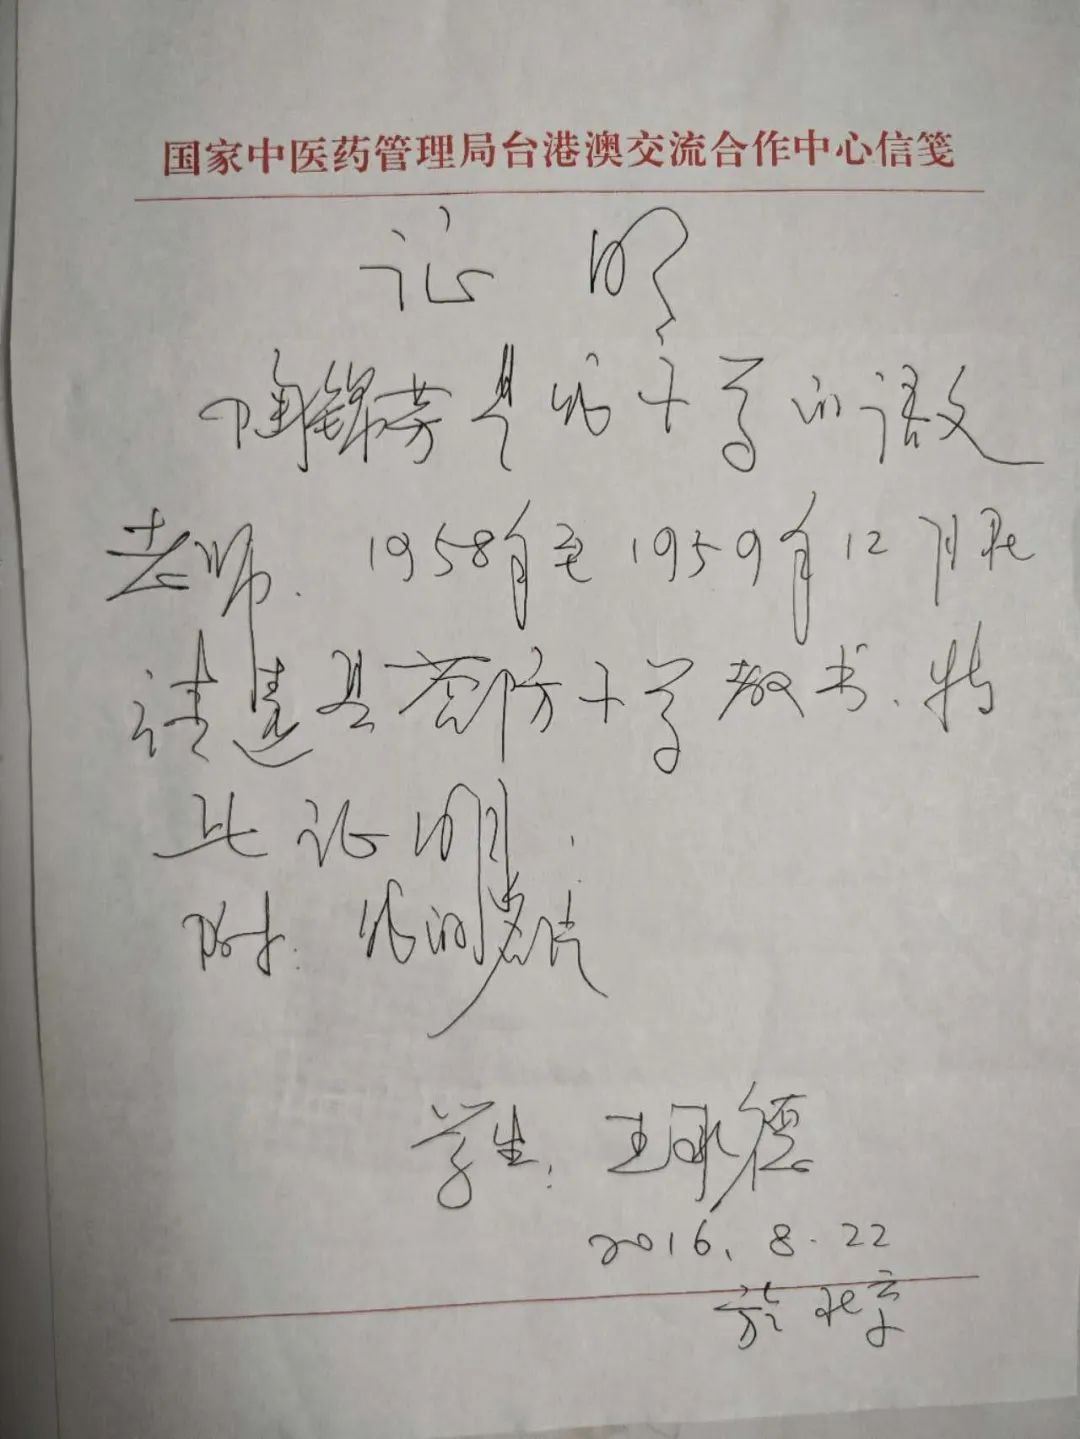 国家中医药管理局台港澳交流合作中心信笺
证明
陶锦芳是我小学的语文
老师. 1958年至1959年12月在
诸暨县小学教书. 特
此证明.
附: 我的
学生: 王承德
2016. 8. 22
于北京